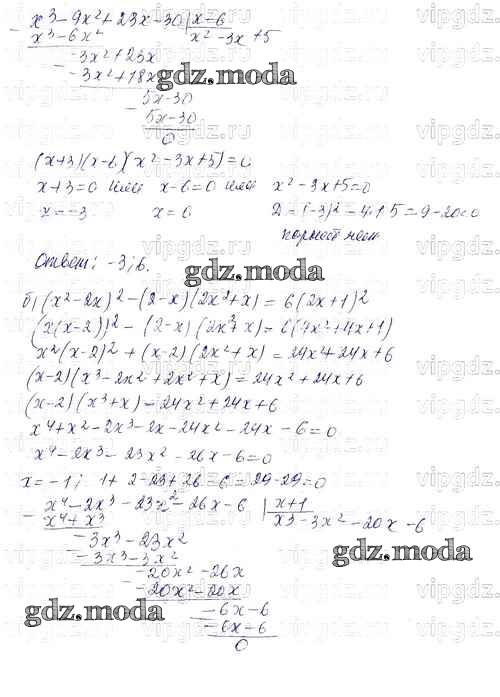 x³-9x²+23x-30 | x-6
x³-6x² x²-3x+5
-3x²+23x
-3x²+18x
5x-30
5x-30
0
(x+3)(x-6)(x²-3x+5)=0
x+3=0 или x-6=0 или x²-3x+5=0
x=-3 x=6 D=(-3)²-4·1·5=9-20<0
корней нет
Ответ: -3; 6.
б) (x²-2x)²-(2-x)(2x²+x)=6(2x+1)²
(x(x-2))²-(2-x)(2x²+x)=6(4x²+4x+1)
x²(x-2)²+(x-2)(2x²+x)=24x²+24x+6
(x-2)(x³-2x²+2x²+x)=24x²+24x+6
(x-2)(x³+x)=24x²+24x+6
x⁴+x²-2x³-2x-24x²-24x-6=0
x⁴-2x³-23x²-26x-6=0
x=-1; 1+2-23+26-6=29-29=0
x⁴-2x³-23x²-26x-6 | x+1
x⁴+x³ x³-3x²-20x-6
-3x³-23x²
-3x³-3x²
-20x²-26x
-20x²-20x
-6x-6
-6x-6
0
gdz.moda
gdz.moda
gdz.moda
gdz.moda
vipgdz.ru